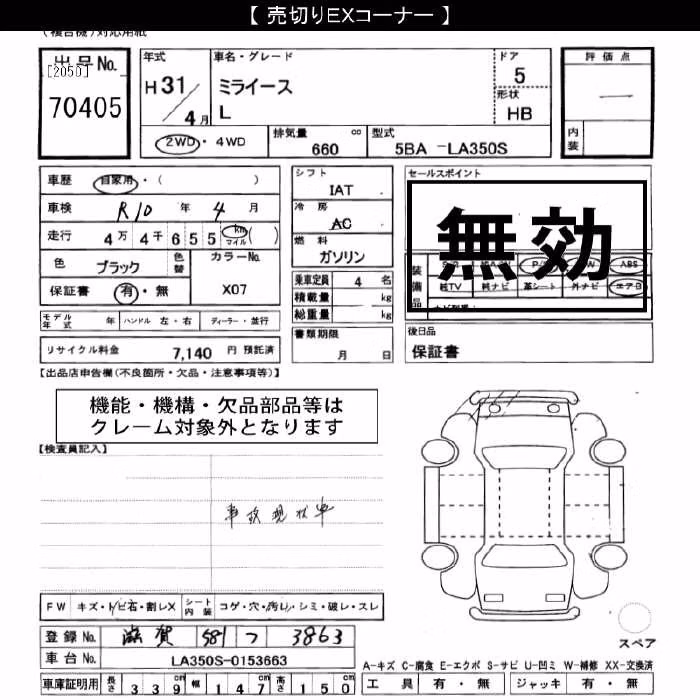 【 売切りEXコーナー 】
(複合機)対応用紙
出品No.
[2050]
70405
年式
H 31 / 4 月
車名・グレード
ミライース
L
ドア
5
形状
HB
評価点
―
内装
2WD・4WD
排気量 cc
660
型式
5BA -LA350S
車歴 自家用・( )
車検 R10 年 4 月
走行 4万 4千 6 5 5 km マイル ( )
色 ブラック 色替
カラーNo.
X07
保証書 有・無
シフト
IAT
冷房
AC
燃料
ガソリン
乗車定員 4 名
積載量 kg
総重量 kg
セールスポイント
無効
装備品
ABS
純TV 純ナビ 革シート 外ナビ エアB
モデル年式 年 ハンドル 左・右 ディーラー・並行
書類期限
月 日
後日品
保証書
リサイクル料金 7,140 円 預託済
【出品店申告欄(不良箇所・欠品・注意事項等)】
機能・機構・欠品部品等は
クレーム対象外となります
【検査員記入】
事故現状車
FW キズ・トビ石・割レX シート内装 コゲ・穴・汚レ・シミ・破レ・スレ
登録No. 滋賀 581 つ 3863
車台No. LA350S-0153663
車庫証明用 長さ 339 cm 幅 147 cm 高さ 150 cm
スペア
A-キズ C-腐食 E-エクボ S-サビ U-凹ミ W-補修 XX-交換済
工具 有・無 ジャッキ 有・無